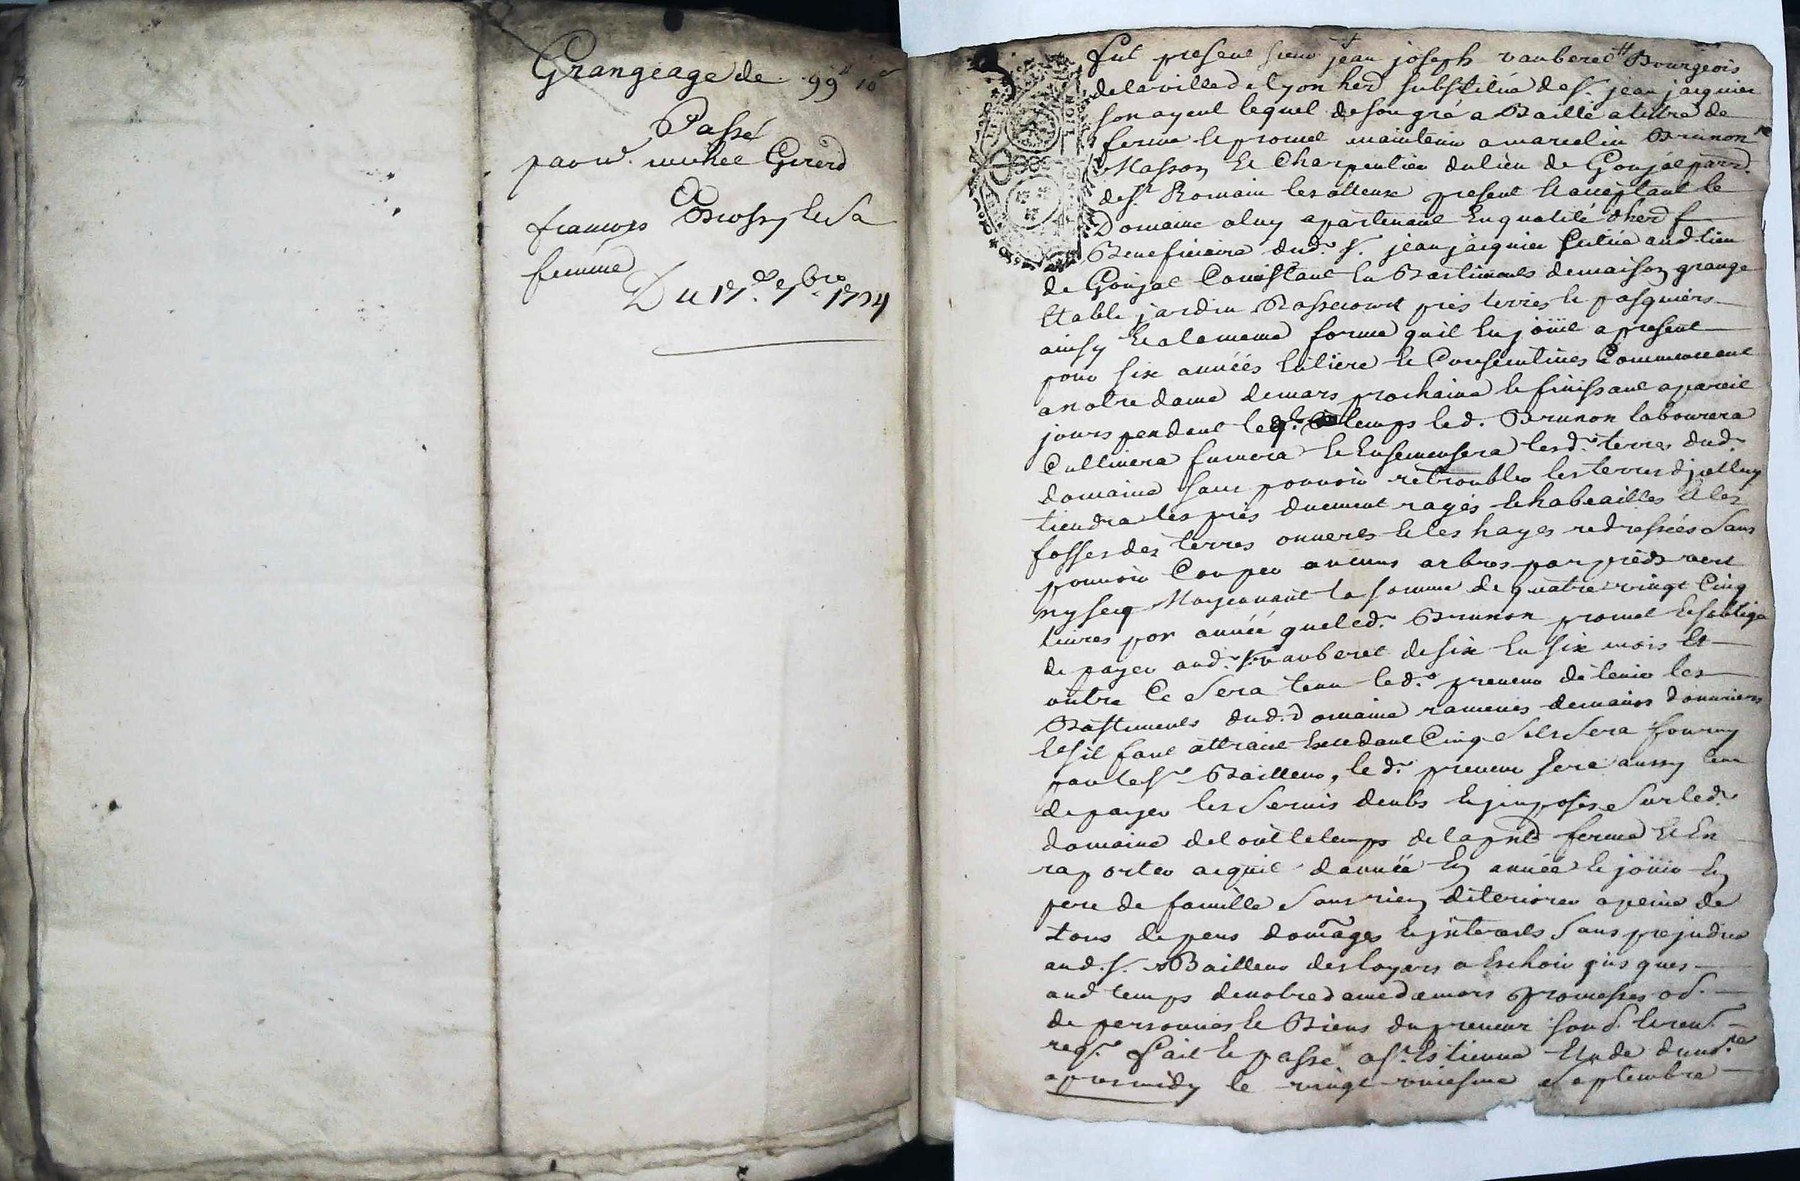 Grangeage de 99# 10s
Passé
par Mr. michel Girerd
A
francois Brossy et Sa
femme
Du 17e 7bre 1724
fut present sieur jean joseph vauberet Bourgeois
de la ville de lyon herd substitué de Sr. jean jacquier
son ayeul lequel de son gré a Baillé a titre de
ferme et promet maintenir a marcelin Brunon
Masson et Charpentier du lieu de Gonjal parr.
de St Romain les atteux present et acceptant le
Domaine a luy apartenant en qualité d'herd
Beneficiaire dud. Sr. jean jacquier scitué aud. lieu
de Gonjal Consistant en Bastiments de maison grange
Etable jardin Bassecourt prés terres et pasquiers
ainsy et a la meme forme quil en joüit a present
pour six années entiere et Consecutives Commencent
a notre dame de mars prochaine et finissant a pareil
jours pendant leql. temps led. Brunon labourera
Cultivera fumera et Ensemensera lesd. terres dud.
domaine sans pouvoir retroubler les terres d'jcelluy
tiendra les prés duement rayés et habeaillés et les
fosses des terres ouveres et les hayes redressées Sans
pouvoir Couper aucuns arbres par pieds vert
ny secq Moyenant la somme de quatre vingt Cinq
livres par année que led. Brunon promet et s'oblige
de payer aud. Sr. vauberet de six en six mois Et
outre Ce Sera tenu led. preneur de tenir les
Bastiments dud. domaine ramenés de mains d'ouvriers
Et sil faut attrait Excedant Cinq Sols Sera fourny
par le Sr. Bailleur, led. preneur sera aussy tenu
de payer les Servis deubs et jmposés Sur led.
domaine de tout le temps de la pnte ferme Et En
raporter acquit d'année En année et joüir En
pere de famille Sans rien deteriorer a peine de
tous depens domages et jnterests Sans prejudice
aud. Sr. Bailleur des loyers a Eschoir jusques
aud. temps de notre dame de mars promesses ob.
de personnes et Biens du preneur soud. et renon.
reqs. fait et passé a St Estienne Etude du not.re
apres midy le vingt uniesme Septembre